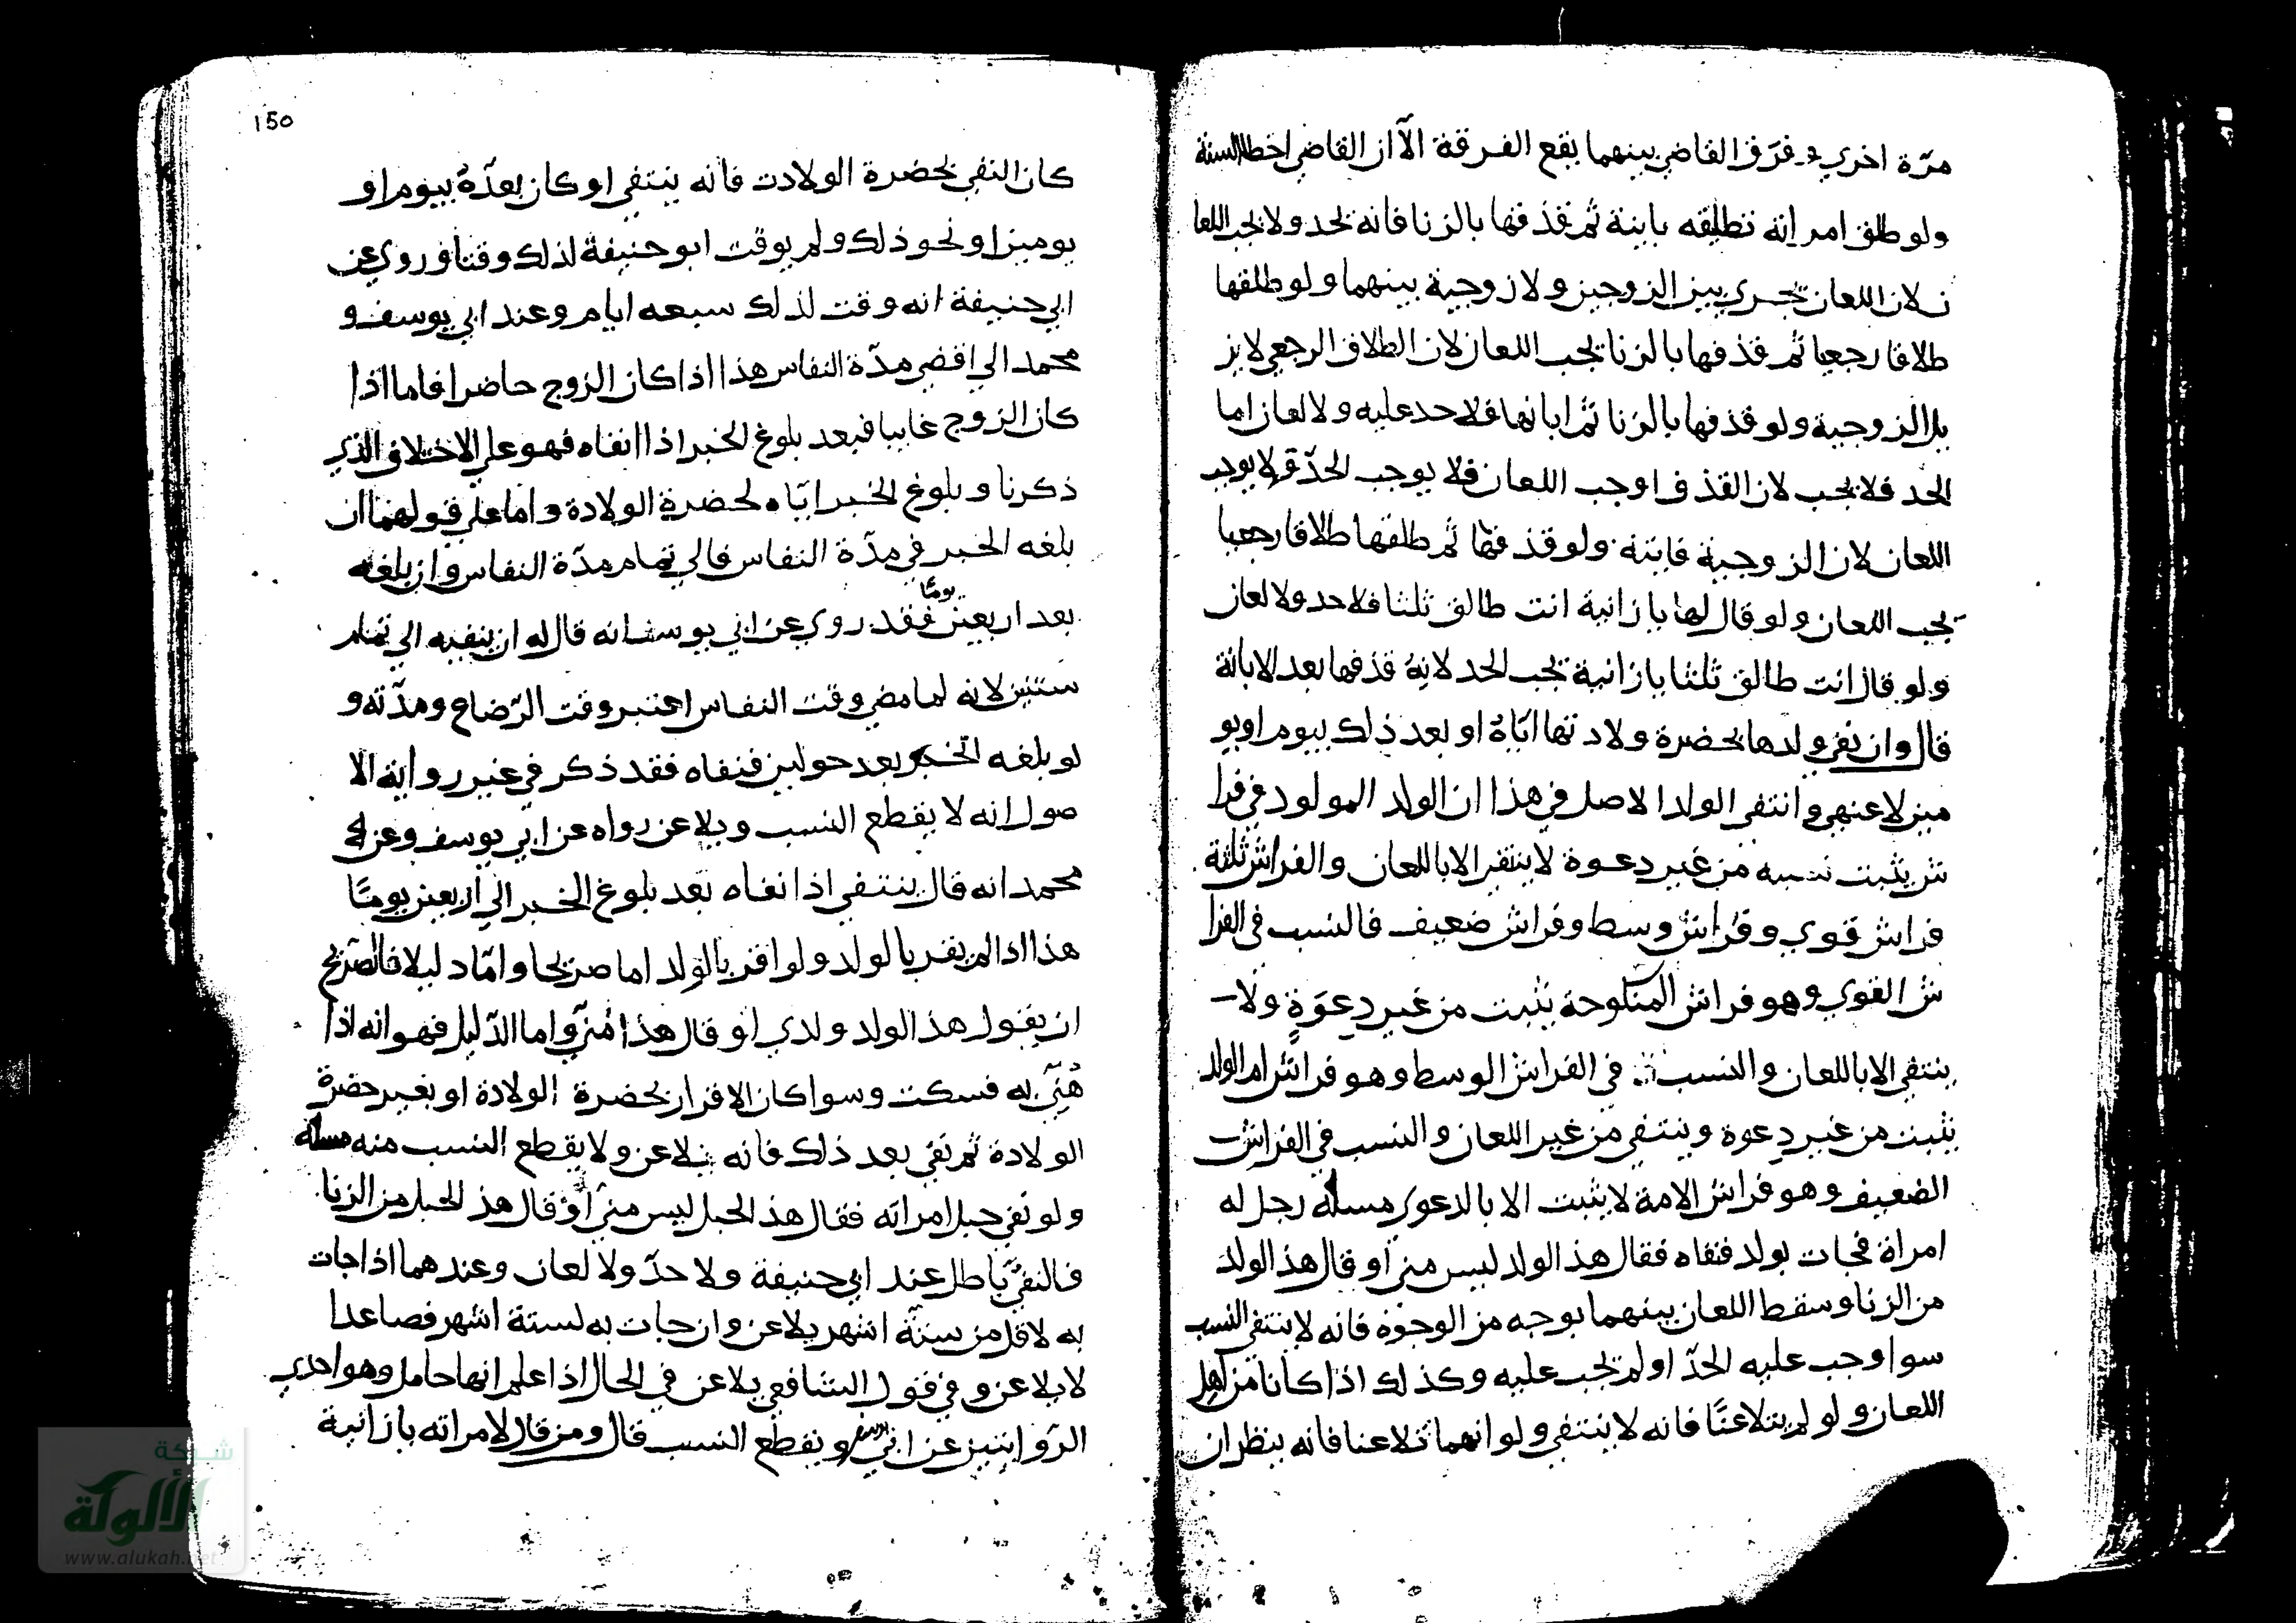 مرّة اخري و فرّق القاضي بينهما يقع الفرقة الاّ ان القاضي اخطا السنة
ولو طلق امراته تطليقه باينة ثم قذفها بالزنا فانه يحد ولا يجب اللعا
ن لان اللعان يجري بين الزوجين ولا زوجية بينهما ولو طلقها
طلاقا رجعيا ثم قذفها بالزنا يجب اللعان لان الطلاق الرجعي لا يز
يل الزوجية ولو قذفها بالزنا ثم ابانها فلا حد عليه ولا لعان اما
الحد فلا يجب لان القذف اوجب اللعان فلا يوجب الحدّ ولا يوجب
اللعان لان الزوجية فايتة ولو قذفها ثم طلقها طلاقا رجعيا
يجب اللعان ولو قال لها يا زانية انت طالق ثلثا فلا حد ولا لعان
ولو قال انت طالق ثلثا يا زانية يجب الحد لانه قذفها بعد الابانة
قال وان نفي ولدها بحضرة ولادتها ايّاه او بعد ذلك بيوم او يو
مين لاعنهي و انتفي الولد الاصل في هذا ان الولد المولود في فرا
ش يثبت نسبه من غير دعوة لا ينتفي الا باللعان والفراش ثلثة
فراش قوي وفراش وسط وفراش ضعيف فالنسب في الفرا
ش القوي وهو فراش المنكوحة يثبت من غير دعوَةٍ ولا
ينتفي الا باللعان والنسب في الفراش الوسط وهو فراش ام الولد
يثبت من غير دعوة وينتفي من غير اللعان والنسب في الفراش
الضعيف وهو فراش الامة لا يثبت الا بالدعوي مسلة رجل له
امراة فجات بولد فنفاه فقال هذ الولد ليس مني او قال هذ الولد
من الزنا وسقط اللعان بينهما بوجه من الوجوه فانه لا ينتفي النسب
سوا وجب عليه الحدّ او لم يجب عليه وكذلك اذا كانا من اهل
اللعان ولو لم يتلاعنا فانه لا ينتفي ولو انهما تلاعنا فانه ينظر ان
150
كان النفي بحضرة الولادت فانه ينتفي او كان بعدهُ بيوم او
يومين او نحو ذلك ولم يوقت ابو حنيفة لذلك وقتا وروي عن
ابي حنيفة انه وقت لذلك سبعه ايام وعند ابي يوسف و
محمد الي اقضي مدّة النفاس هذا اذا كان الزوج حاضرا فاما اذا
كان الزوج غايبا فبعد بلوغ الخبر اذا نفاه فهو علي الاختلاف الذي
ذكرنا وبلوغ الخبر ايّاه لحضرة الولادة واما علي قولهما ان
بلغه الخبر في مدّة النفاس فالي تمام مدّة النفاس وان بلغه
بعد اربعين يومًا فقد روي عن ابي يوسف انه قال له ان ينفيه الي تمام
سنتين لانه لما مضي وقت النفاس اعتبر وقت الرّضاع ومدّته و
لو بلغه الخبر بعد حولين فنفاه فقد ذكر في غير رواية الا
صول انه لا يقطع النسب ويلاعن رواه عن ابي يوسف وعن
محمد انه قال ينتفي اذا نفاه بعد بلوغ الخبر الي اربعين يومًا
هذا اذا لم يقر بالولد ولو اقر بالولد اما صريحا وامّا دليلا فالصّريح
ان يقول هذ الولد ولدي او قال هذا منّي واما الدّليل فهو انه اذا
هُنّي به فسكت وسوا كان الاقرار بحضرة الولادة او بغير حضرة
الولادة ثم نفي بعد ذلك فانه يلاعن ولا يقطع النسب منه مسلة
ولو نفي حبل امراته فقال هذ الحبل ليس مني او قال هذ الحبل من الزنا
فالنفي باطل عند ابي حنيفة ولا حدّ ولا لعان وعندهما اذا جات
به لاقل من ستة اشهر يلاعن وان جات به لستة اشهر فصاعدا
لا يلاعن وفي قول الشافعي يلاعن في الحال اذا علم انها حامل وهو احدي
الرّوايتين عن ابي يوسف ويقطع النسب قال ومن قال لامراته يا زانية
شبكة
الألوكة
www.alukah.net